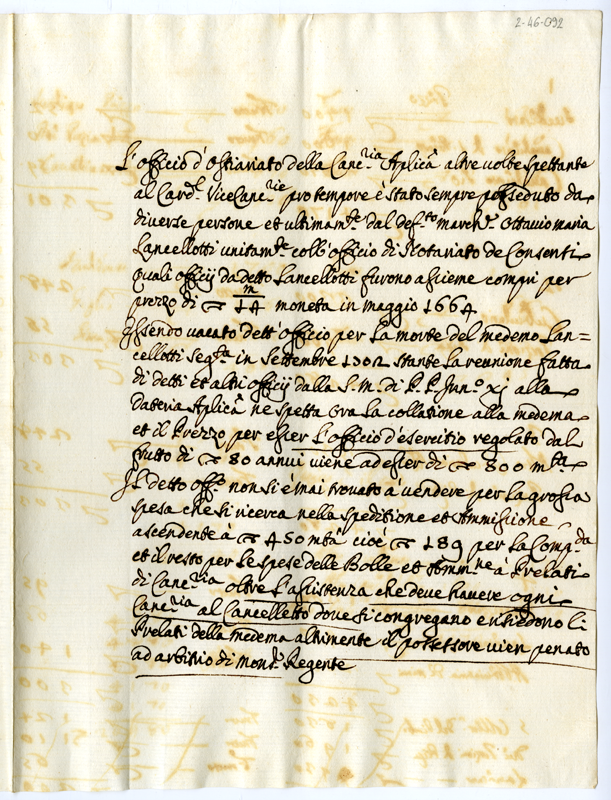 2-46-092
L'officio d'Ostiariato della Canc.ria Aplicā altre volte spettante
al Card.l ViceCanc.rie pro tempore è stato sempre posseduto da
diverse persone et ultimam.te dal def.to march.e Ottavio maria
Lancellotti unitam.te coll'officio di Notariato de Consenti
quali officij da detto Lancellotti furono assieme compri per
prezzo di ▽ 14 m moneta in maggio 1664
Essendo vacato dett'officio per la morte del medemo Lan=
cellotti seg.ta in Settembre 1702 stante la reunione fatta
di detti et altri officij dalla S. M. di P. P. Inn.o XI alla
Dateria Aplicā ne spetta ora la collatione alla medema
et il Prezzo per esser L'officio d'esercitio regolato dal
frutto di ▽ 80 annui viene ad esser di ▽ 800 m.ta
Il detto off.o non si è mai trovato à vendere per la grossa
spesa che si ricerca nella speditione et Ammissione
ascendente à ▽ 450 mtā cioè ▽ 189 per la Comp.da
et il resto per le spese delle Bolle et Amm.ne à Prelati
di Canc.ria oltre L'assistenza che deve havere ogni
Canc.ria al Cancelletto dove si congregano e risiedono li
Prelati della medema altrimente il possessore vien penato
ad arbitrio di mons.r Regente